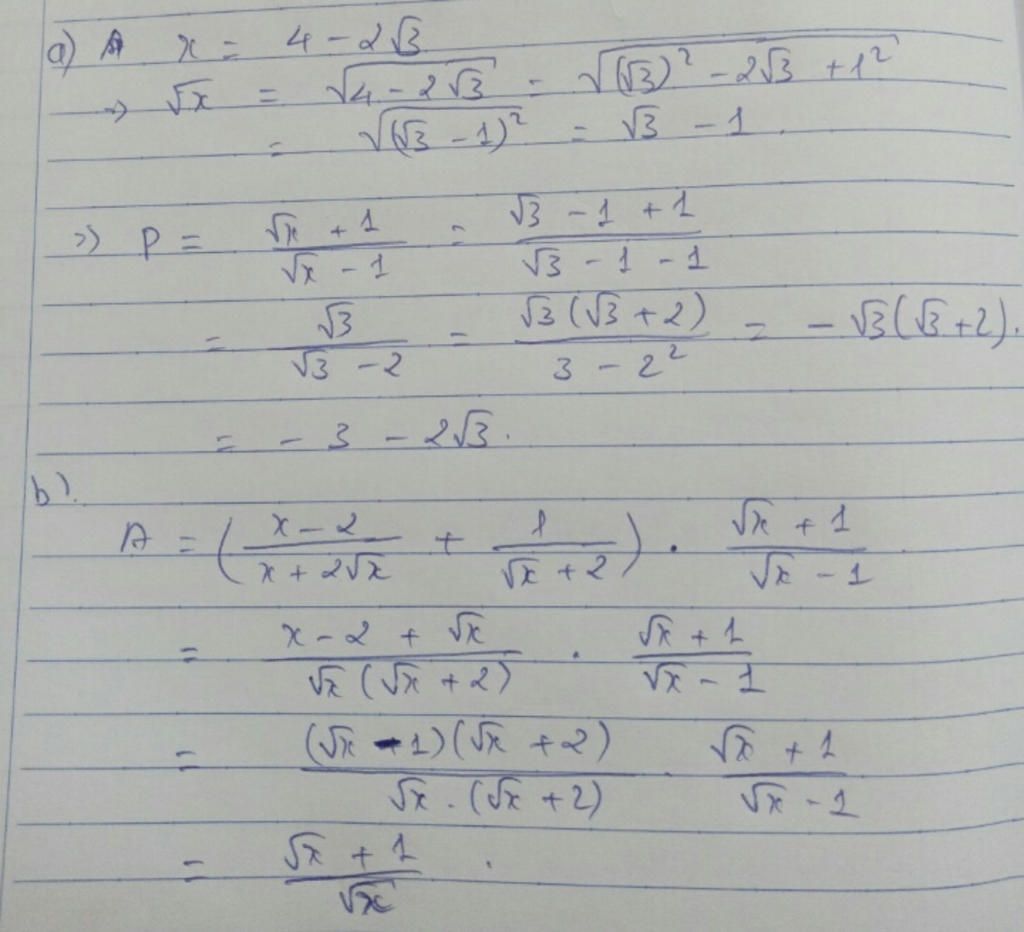 a) A x = 4 - 2√3
=> √x = √(4 - 2√3) = √((√3)² - 2√3 + 1²)
= √((√3 - 1)²) = √3 - 1
=> P = (√x + 1)/(√x - 1) = (√3 - 1 + 1)/(√3 - 1 - 1)
= √3/(√3 - 2) = √3(√3 + 2)/(3 - 2²) = - √3(√3 + 2).
= - 3 - 2√3.
b).
A = ((x - 2)/(x + 2√x) + 1/(√x + 2)) . (√x + 1)/(√x - 1)
= (x - 2 + √x)/(√x (√x + 2)) . (√x + 1)/(√x - 1)
= (√x - 1)(√x + 2)/(√x . (√x + 2)) . (√x + 1)/(√x - 1)
= (√x + 1)/√x .